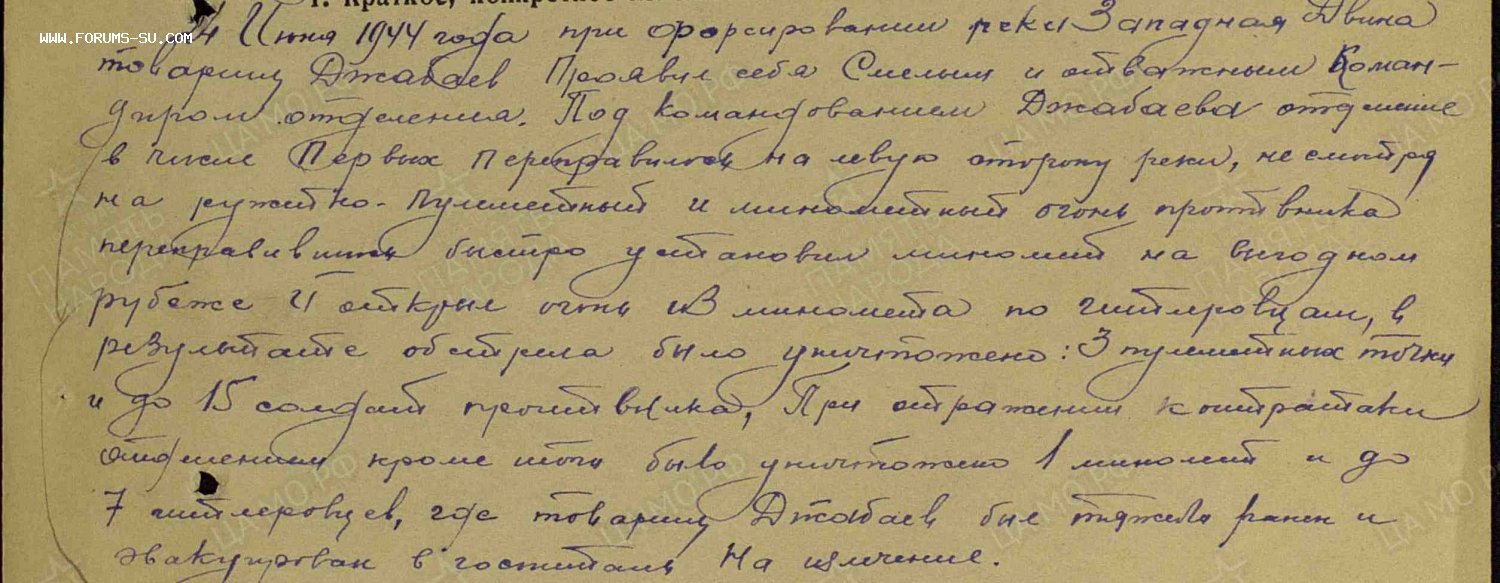 1. Краткое, конкретное
WWW.FORUMS-SU.COM
4 Июня 1944 года при форсировании реки Западная Двина
товарищ Джабаев Проявил себя Смелым и отважным Коман-
диром отделения. Под командованием Джабаева отделение
в числе Первых Переправилось на левую сторону реки, не смотря
на ружейно-пулеметный и минометный огонь противника
переправившись быстро установил миномет на выгодном
рубеже И открыл огонь из миномета по гитлеровцам, в
результате обстрела было уничтожено: 3 пулеметных точки
и до 15 солдат противника, При отражении контратаки
отделением кроме того было уничтожено 1 миномет и до
7 гитлеровцев, где товарищ Джабаев был тяжело ранен и
эвакуирован в госпиталь На излечение.